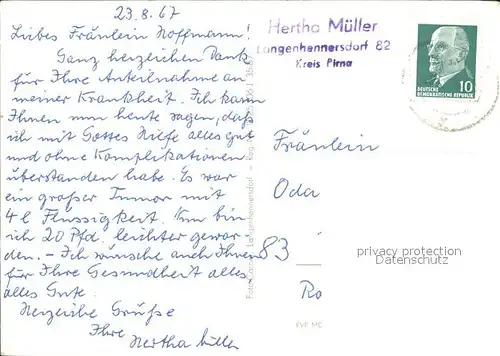 23.8.67
Liebes Fräulein Hoffmann!
Ganz herzlichen Dank
für Ihre Anteilnahme an
meiner Krankheit. Ich kann
Ihnen nun heute sagen, daß
ich mit Gottes Hilfe alles gut
und ohne Komplikationen
überstanden habe. Es war
ein großer Tumor mit
4 l Flüssigkeit. Nun bin
ich 20 Pfd. leichter gewor
den. – Ich wünsche auch Ihnen
für Ihre Gesundheit alles,
alles Gute.
Herzliche Grüße
Ihre
Hertha Müller
Hertha Müller
Langenhennersdorf 82
Kreis Pirna
10
DEUTSCHE
DEMOKRATISCHE REPUBLIK
Fräulein
Oda
83
Ro
privacy protection
watermark